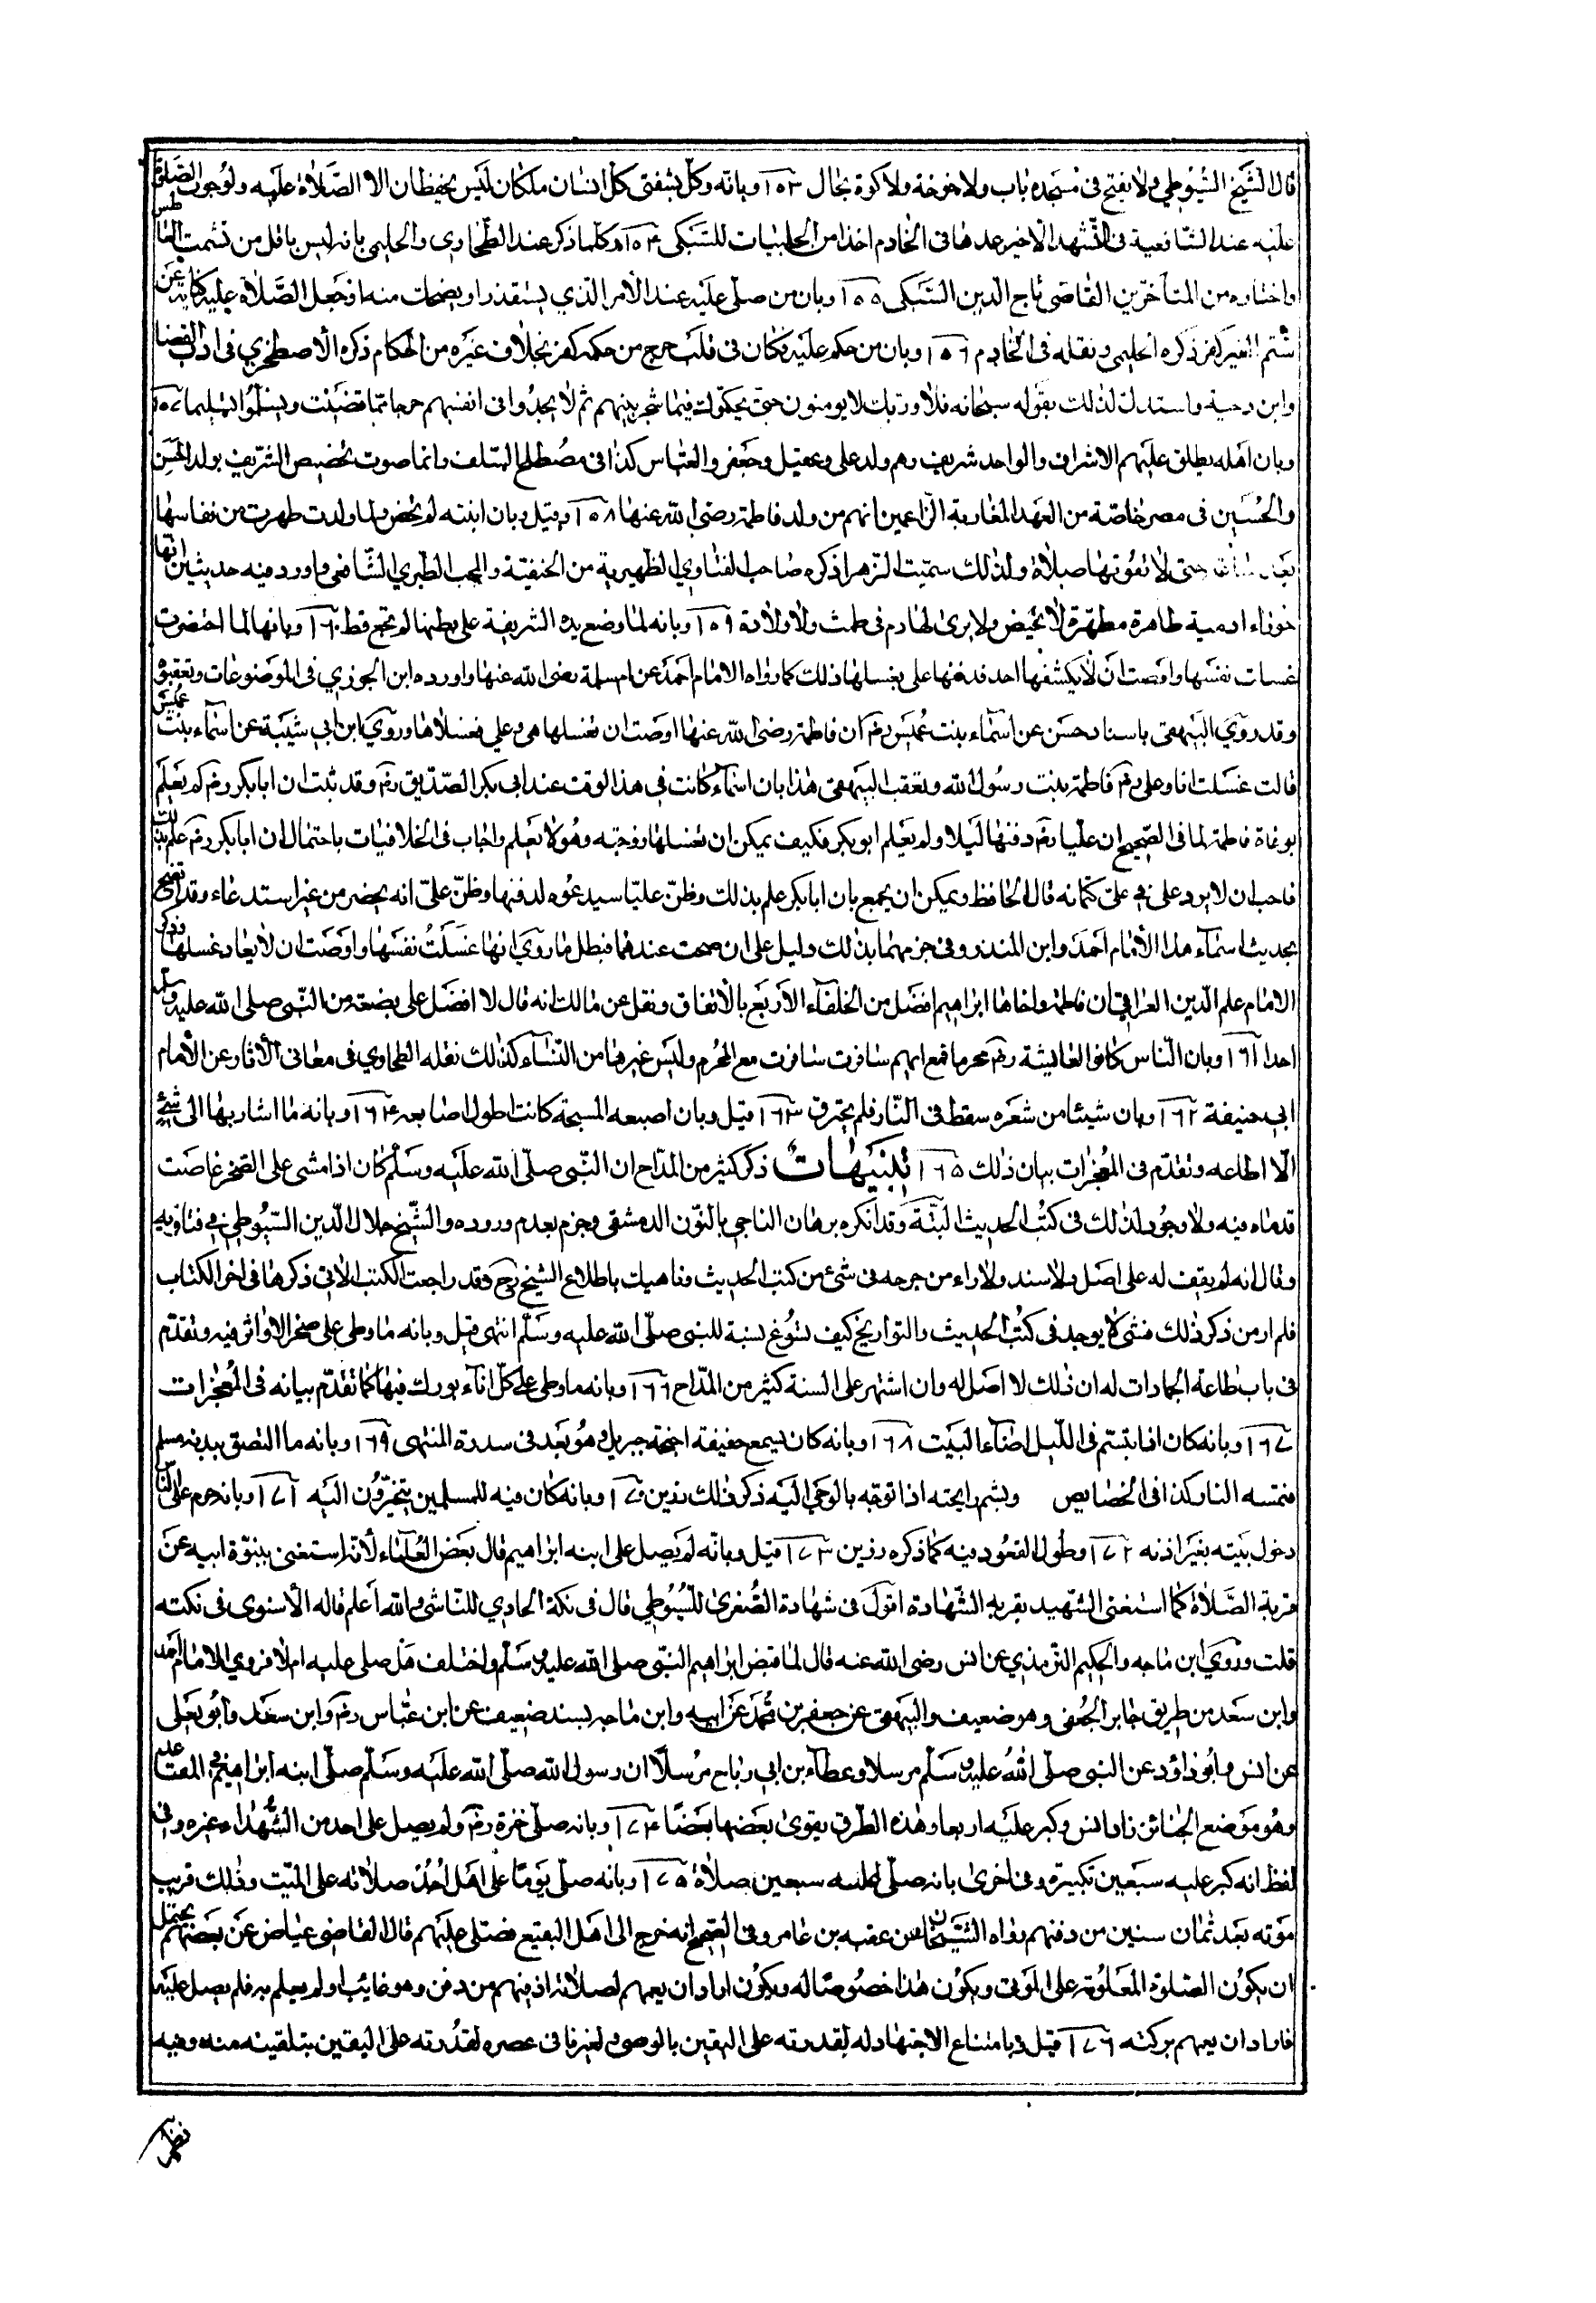 قال الشيخ السيوطي ولا يفتح في مسجده باب ولا خوخة ولا كوة بحال ١٥٣ وبانه وكل بشفتي كل انسان ملكان ليس يحفظان الا الصلاة عليه ولوجوب الصلوة
عليه عند الشافعية في التشهد الاخير عدها في الخادم اخذا من الحلبيات للسبكي ١٥٤ وكلما ذكر عند الطحاوي والحليمي بانه ليس باقل من تشميت العاطس
واختاره من المتأخرين القاضي تاج الدين السبكي ١٥٥ وبان من صلى عليه عند الامر الذي يستقذر او يضحك منه او جعل الصلاة عليه كناية عن
شتم الغير كفر ذكره الحليمي ونقله في الخادم ١٥٦ وبان من حكم عليه فكان في قلبه حرج من حكمه كفر بخلاف غيره من الحكام ذكره الاصطخري في ادب القضا
وابن دحية واستدل لذلك بقوله سبحانه فلا وربك لا يومنون حتى يحكموك فيما شجر بينهم ثم لا يجدوا في انفسهم حرجا مما قضيت ويسلموا تسليما ١٥٧
وبان اهله يطلق عليهم الاشراف والواحد شريف وهم ولد علي وعقيل وجعفر والعباس كذا في مصطلح السلف وانما تخصيص الشريف بولد الحسن
والحسين في مصر خاصة من العهد المغاربة الزاعمين انهم من ولد فاطمة رضي الله عنها ١٥٨ وقيل وبان ابنته لم تحض ولما ولدت طهرت من نفاسها
بعد ساعة حتى لا تفوتها صلاة ولذلك سميت الزهرا ذكره صاحب الفتاوي الظهيرية من الحنفية والمحب الطبري الشافعي واورد فيه حديثين انها
حوراء ادمية طاهرة مطهرة لا تحيض ولا يرى لها دم في طمث ولا ولادة ١٥٩ وبانه لما وضع يده الشريفة على بطنها لم تجع قط ١٦٠ وبانها لما احتضرت
غسلت نفسها واوصت ان لا يكشفها احد فدفنها علي بغسلها ذلك كما رواه الامام احمد عن ام سلمة رضي الله عنها واورده ابن الجوزي في الموضوعات وتعقبوه
وقد روى البيهقي باسناد حسن عن اسماء بنت عميس رضه ان فاطمة رضي الله عنها اوصت ان تغسلها هي وعلي فغسلاها وروى ابن ابي شيبة عن اسماء بنت عميس
قالت غسلت انا وعلي رضه فاطمة بنت رسول الله وتعقب البيهقي هذا بان اسماء كانت في هذا الوقت عند ابي بكر الصديق رضه وقد ثبت ان ابا بكر رضه لم يعلم
بوفاة فاطمة لما في الصحيح ان عليا رضه دفنها ليلا ولم يعلم ابو بكر فكيف يمكن ان تغسلها زوجته وهو لا يعلم واجاب في الخلافيات باحتمال ان ابا بكر رضه علم بذلك
فاحب ان لا يرد على علي كتمانه قال الحافظ ويمكن ان يجمع بان ابا بكر علم بذلك وظن عليا سيدعوه لدفنها وظن علي انه يحضر من غير استدعاء وقد احتج
بحديث اسماء هذا الامام احمد وابن المنذر وفي جزمهما بذلك دليل على ان صحت عندهما فبطل ما روي انها غسلت نفسها واوصت ان لا يعاد غسلها وذكر
الامام علم الدين العراقي ان فاطمة واخاها ابراهيم افضل من الخلفاء الاربع بالاتفاق ونقل عن مالك انه قال لا افضل على بضعة من النبي صلى الله عليه وسلم
احدا ١٦١ وبان الناس كانوا لعايشة رضه محرما فمع ايهم سافرت سافرت مع المحرم وليس غيرها من النساء كذلك نقله الطحاوي في معاني الاثار عن الامام
ابي حنيفة ١٦٢ وبان شيئا من شعره سقط في النار فلم يحترق ١٦٣ قيل وبان اصبعه المسبحة كانت اطول اصابعه ١٦٤ وبانه ما اشار بها الى شئ
الا اطاعه وتقدم في المعجزات بيان ذلك ١٦٥ تنبيهات ذكر كثير من المداح ان النبي صلى الله عليه وسلم كان اذا مشى على الصخر غاصت
قدماه فيه ولا وجود لذلك في كتب الحديث البتة وقد انكره برهان الناجي بالنون الدمشقي وجزم بعدم وروده والشيخ جلال الدين السيوطي في فتاويه
وقال انه لم يقف له على اصل ولا سند ولا راى من خرجه في شئ من كتب الحديث وناهيك باطلاع الشيخ رح وقد راجعت الكتب الاتي ذكرها في اخر الكتاب
فلم ار من ذكر ذلك فشئ لا يوجد في كتب الحديث والتواريخ كيف تسوغ نسبة للنبي صلى الله عليه وسلم انتهى قيل وبانه ما وطي على صخر الا واثر فيه وتقدم
في باب طاعة الجمادات له ان ذلك لا اصل له وان اشتهر على السنة كثير من المداح ١٦٦ وبانه ما وطي على كل اناء بورك فيها كما تقدم بيانه في المعجزات
١٦٧ وبانه كان اذا تبسم في الليل اضاء البيت ١٦٨ وبانه كان يسمع حفيف اجنحة جبريل وهو بعد في سدرة المنتهى ١٦٩ وبانه ما التصق ببدنه مسلم
فتمسه النار كذا في الخصايص ويشم رايحته اذا توجه بالوحي اليه ذكر ذلك رزين ١٧٠ وبانه كان فيه للمسلمين يتحيزون اليه ١٧١ وبانه حرم على الناس
دخول بيته بغير اذنه ١٧٢ وطول القعود فيه كما ذكره رزين ١٧٣ قيل وبانه لم يصل على ابنه ابراهيم قال بعض العلماء لانه استغنى ببنوة ابيه عن
قربة الصلاة كما استغنى الشهيد بقربة الشهادة اقول في شهادة الصغرى للسيوطي قال في نكة الحاوي للناشي والله اعلم قاله الاسنوي في نكته
قلت وروى ابن ماجه والحكيم الترمذي عن انس رضي الله عنه قال لما قبض ابراهيم النبي صلى الله عليه وسلم واختلف هل صلى عليه ام لا فروي الامام احمد
وابن سعد من طريق جابر الجعفي وهو ضعيف والبيهقي عن جعفر بن محمد عن ابيه وابن ماجه بسند ضعيف عن ابن عباس رضه وابن سعد وابو يعلى
عن انس وابو داؤد عن النبي صلى الله عليه وسلم مرسلا وعطاء بن ابي رباح مرسلا ان رسول الله صلى الله عليه وسلم صلى ابنه ابراهيم في المقاعد
وهو موضع الجنائز زاد انس وكبر عليه اربعا وهذه الطرق يقوى بعضها بعضا ١٧٤ وبانه صلى حمزة رضه ولم يصل على احد من الشهداء غيره وفي
لفظ انه كبر عليه سبعين تكبيرة وفي اخرى بانه صلى عليه سبعين صلاة ١٧٥ وبانه صلى يوما على اهل احد صلاته على الميت وذلك قريب
موته بعد ثمان سنين من دفنهم رواه الشيخان عن عقبه بن عامر وفي الصحيح انه خرج الى اهل البقيع فصلى عليهم قال القاضي عياض عن بعضهم يحتمل
ان يكون الصلوة المعلومة على الموتى ويكون هذا خصوصا له ويكون اراد ان يعمهم لصلاته اذ فيهم من دفن وهو غائب او لم يعلم به فلم يصل عليه
فاراد ان يعمهم بركته ١٧٦ قيل وبامتناع الاجتهاد له لقدرته على اليقين بالوحي ولغيره في عصره لقدرته على اليقين بتلقينه منه وفيه
نظر